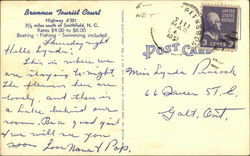 Brannon Tourist Court
Highway #301
3½ miles south of Smithfield, N. C.
Rates $4.00 to $6.00
Boating · Fishing · Swimming included
Thursday night
Hello Lynda:
This is where we
are staying to-night.
The flowers here are
lovely, and there is
a lake behind our
room. Be a good girl,
we will see you
soon Love Nana & Pop.
POST CARD
3 CENTS 3
Miss Lynda
66 St. E.
Galt, Ont.